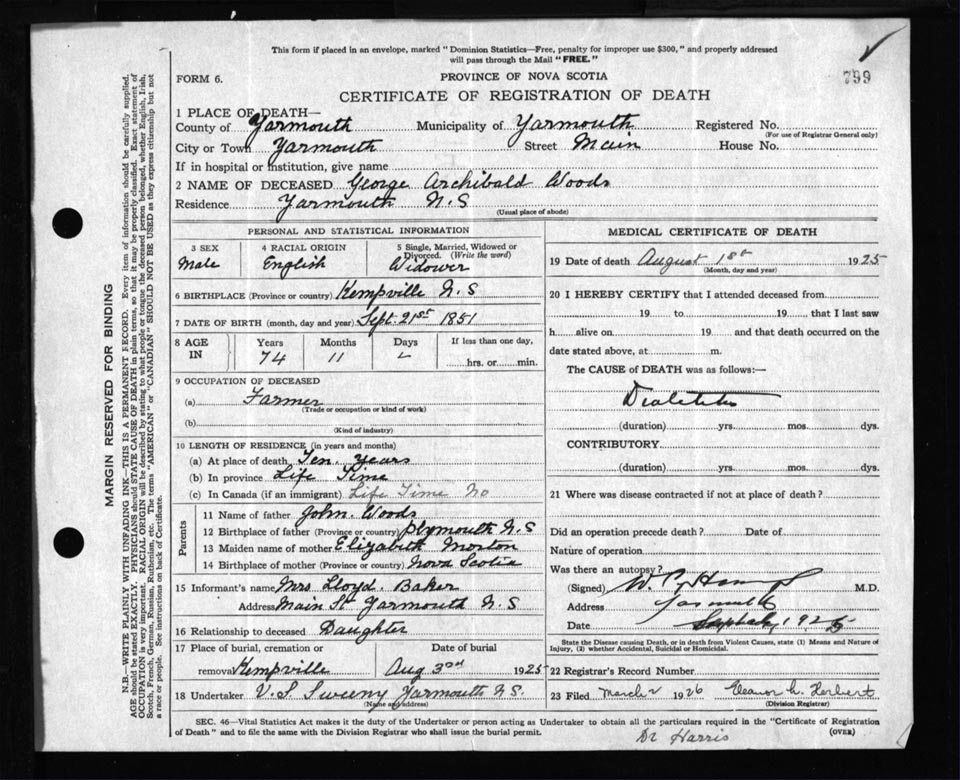 This form if placed in an envelope, marked "Dominion Statistics—Free, penalty for improper use $300," and properly addressed
will pass through the Mail "FREE."
FORM 6.
PROVINCE OF NOVA SCOTIA
799
CERTIFICATE OF REGISTRATION OF DEATH
1 PLACE OF DEATH—
County of Yarmouth Municipality of Yarmouth Registered No.
(For use of Registrar General only)
City or Town Yarmouth Street Main House No.
If in hospital or institution, give name
2 NAME OF DECEASED George Archibald Woods
Residence Yarmouth N.S
(Usual place of abode)
PERSONAL AND STATISTICAL INFORMATION
3 SEX 4 RACIAL ORIGIN 5 Single, Married, Widowed or
Divorced. (Write the word)
Male English Widower
6 BIRTHPLACE (Province or country) Kempville N.S
7 DATE OF BIRTH (month, day and year) Sept. 21st 1851
8 AGE IN Years Months Days If less than one day,
74 11 hrs. or min.
9 OCCUPATION OF DECEASED
(a) Farmer
(Trade or occupation or kind of work)
(b)
(Kind of industry)
10 LENGTH OF RESIDENCE (in years and months)
(a) At place of death Ten. years
(b) In province Life Time
(c) In Canada (if an immigrant) Life Time No
Parents
11 Name of father John. Woods
12 Birthplace of father (Province or country) Plymouth N.S
13 Maiden name of mother Elizabeth Morton
14 Birthplace of mother (Province or country) Nova Scotia
15 Informant's name Mrs Lloyd. Baker
Address Main St Yarmouth N.S
16 Relationship to deceased Daughter
17 Place of burial, cremation or Date of burial
removal Kempville Aug 3rd 1925
18 Undertaker V.S. Sweeny Yarmouth N.S.
(Name and address)
MEDICAL CERTIFICATE OF DEATH
19 Date of death August 1st 1925
(Month, day and year)
20 I HEREBY CERTIFY that I attended deceased from
19 to 19 that I last saw
h alive on 19 and that death occurred on the
date stated above, at m.
The CAUSE of DEATH was as follows:—
Diabetes
(duration) yrs. mos. dys.
CONTRIBUTORY
(duration) yrs. mos. dys.
21 Where was disease contracted if not at place of death?
Did an operation precede death? Date of
Nature of operation
Was there an autopsy?
(Signed) M.D.
Address Yarmouth
Date 1925
State the Disease causing Death, or in death from Violent Causes, state (1) Means and Nature of
Injury, (2) whether Accidental, Suicidal or Homicidal.
22 Registrar's Record Number
23 Filed March 2 1926 Eleanor h. Herbert
(Division Registrar)
SEC. 46—Vital Statistics Act makes it the duty of the Undertaker or person acting as Undertaker to obtain all the particulars required in the "Certificate of Registration
of Death" and to file the same with the Division Registrar who shall issue the burial permit.
(OVER)
Dr Harris
MARGIN RESERVED FOR BINDING
N.B.—WRITE PLAINLY WITH UNFADING INK—THIS IS A PERMANENT RECORD. Every item of information should be carefully supplied.
AGE should be stated EXACTLY. PHYSICIANS should STATE CAUSE OF DEATH in plain terms, so that it may be properly classified. Exact statement of
OCCUPATION is very important. RACIAL ORIGIN will be described by stating to what people or tongue the deceased person belonged, whether English, Irish,
Scotch, French, German, Russian, Ruthenian, etc. The terms "AMERICAN" or "CANADIAN" SHOULD NOT BE USED as they express citizenship but not
a race or people. See instructions on back of Certificate.